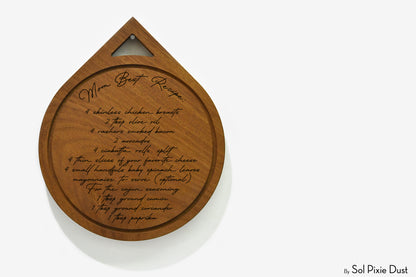 Mom Best Recipe
4 skinless chicken breasts
2 tbsp olive oil
4 rashers smoked bacon
2 avocados
4 ciabatta rolls split
4 thin slices of your favorite cheese
4 small handfuls baby spinach leaves
mayonnaise to serve (optional)
For the cajun seasoning
1 tbsp ground cumin
1 tbsp ground coriander
1 tbsp paprika
By Sol Pixie Dust